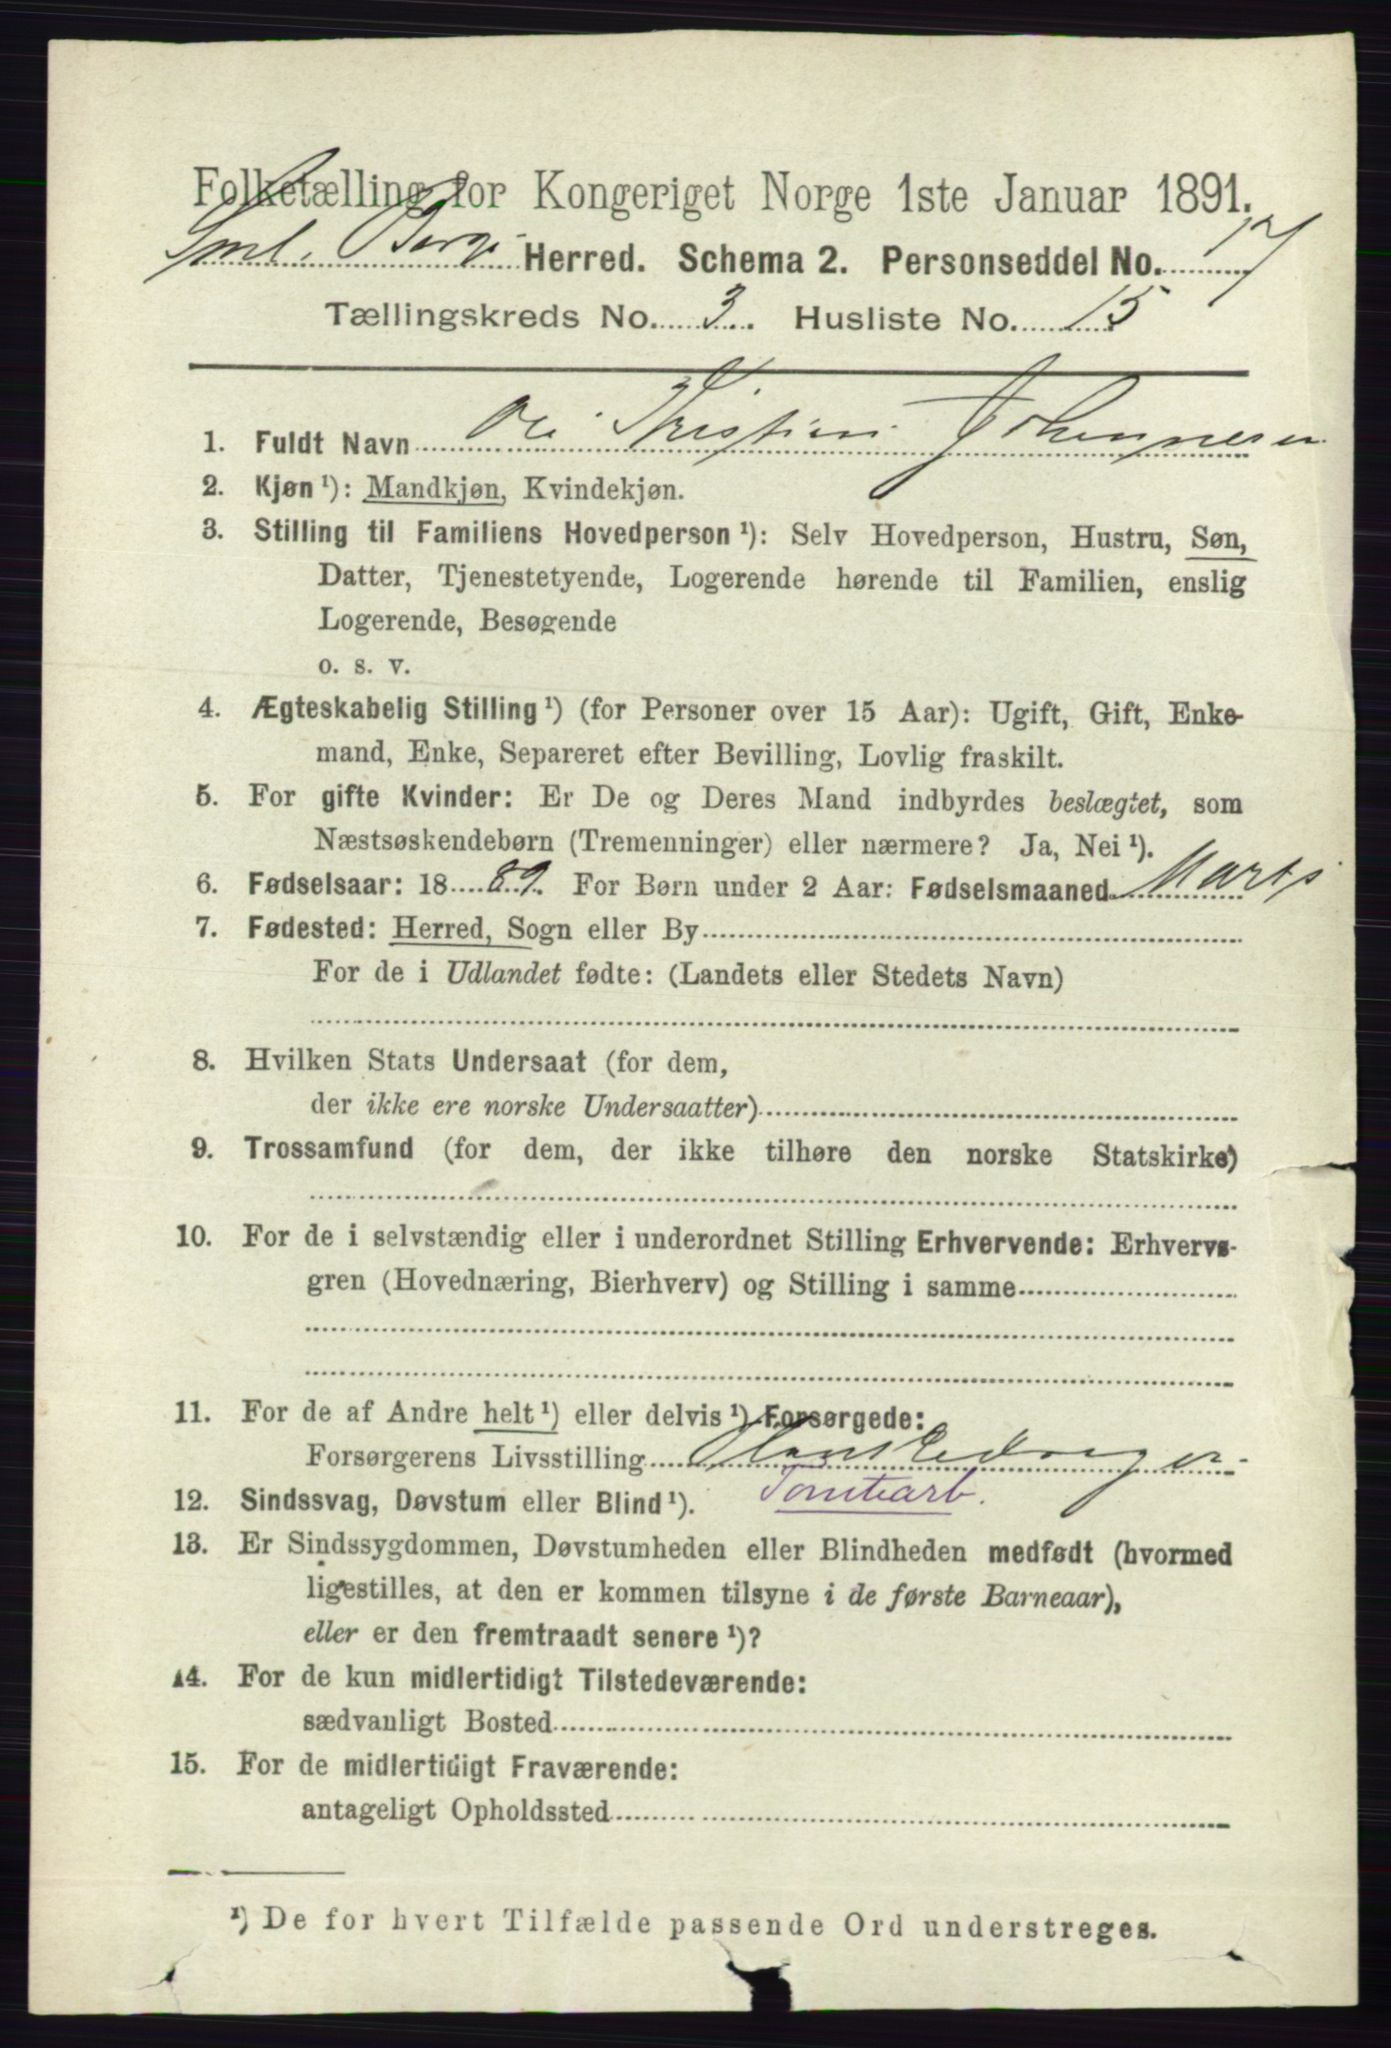 Folketælling for Kongeriget Norge 1ste Januar 1891.
Sml. Berg Herred. Schema 2. Personseddel No. 17
Tællingskreds No. 3. Husliste No. 15
1. Fuldt Navn Ole Kristian Johannesen
2. Kjøn¹): Mandkjøn, Kvindekjøn.
3. Stilling til Familiens Hovedperson¹): Selv Hovedperson, Hustru, Søn,
Datter, Tjenestetyende, Logerende hørende til Familien, enslig
Logerende, Besøgende
o. s. v.
4. Ægteskabelig Stilling¹) (for Personer over 15 Aar): Ugift, Gift, Enke-
mand, Enke, Separeret efter Bevilling, Lovlig fraskilt.
5. For gifte Kvinder: Er De og Deres Mand indbyrdes beslægtet, som
Næstsøskendebørn (Tremenninger) eller nærmere? Ja, Nei¹).
6. Fødselsaar: 1889. For Børn under 2 Aar: Fødselsmaaned Marts
7. Fødested: Herred, Sogn eller By
For de i Udlandet fødte: (Landets eller Stedets Navn)
8. Hvilken Stats Undersaat (for dem,
der ikke ere norske Undersaatter)
9. Trossamfund (for dem, der ikke tilhøre den norske Statskirke)
10. For de i selvstændig eller i underordnet Stilling Erhvervende: Erhvervs-
gren (Hovednæring, Bierhverv) og Stilling i samme
11. For de af Andre helt¹) eller delvis¹) Forsørgede:
Forsørgerens Livsstilling
Tomtearb.
12. Sindssvag, Døvstum eller Blind¹).
13. Er Sindssygdommen, Døvstumheden eller Blindheden medfødt (hvormed
ligestilles, at den er kommen tilsyne i de første Barneaar),
eller er den fremtraadt senere¹)?
14. For de kun midlertidigt Tilstedeværende:
sædvanligt Bosted
15. For de midlertidigt Fraværende:
antageligt Opholdssted
¹) De for hvert Tilfælde passende Ord understreges.